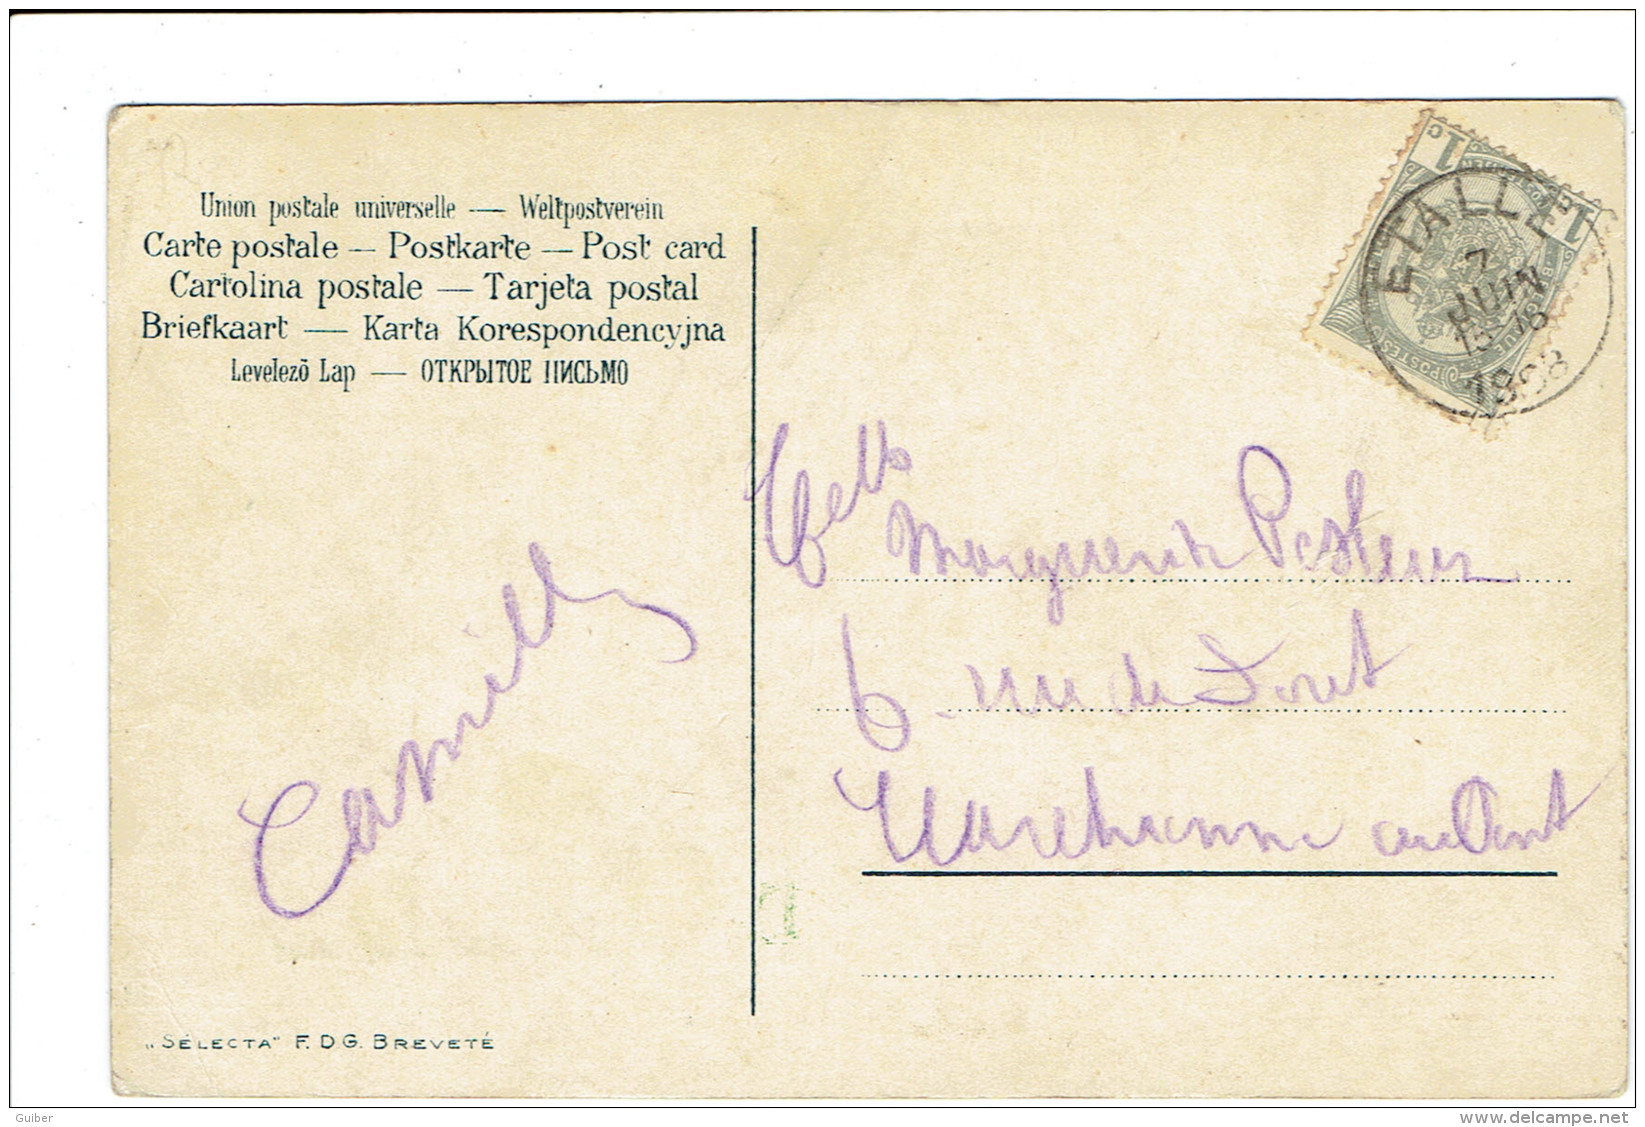 Union postale universelle — Weltpostverein
Carte postale — Postkarte — Post card
Cartolina postale — Tarjeta postal
Briefkaart — Karta Korespondencyjna
Levelezō Lap — ОТКРЫТОЕ ПИСЬМО
1c
1c
POSTES
ETALLE
7
JUIN
15-16
1908
Marguerite
6. rue de Foret
Marchienne au Pont
Camille
„SÉLECTA" F. D G. BREVETÉ
Guiber
www.delcampe.net